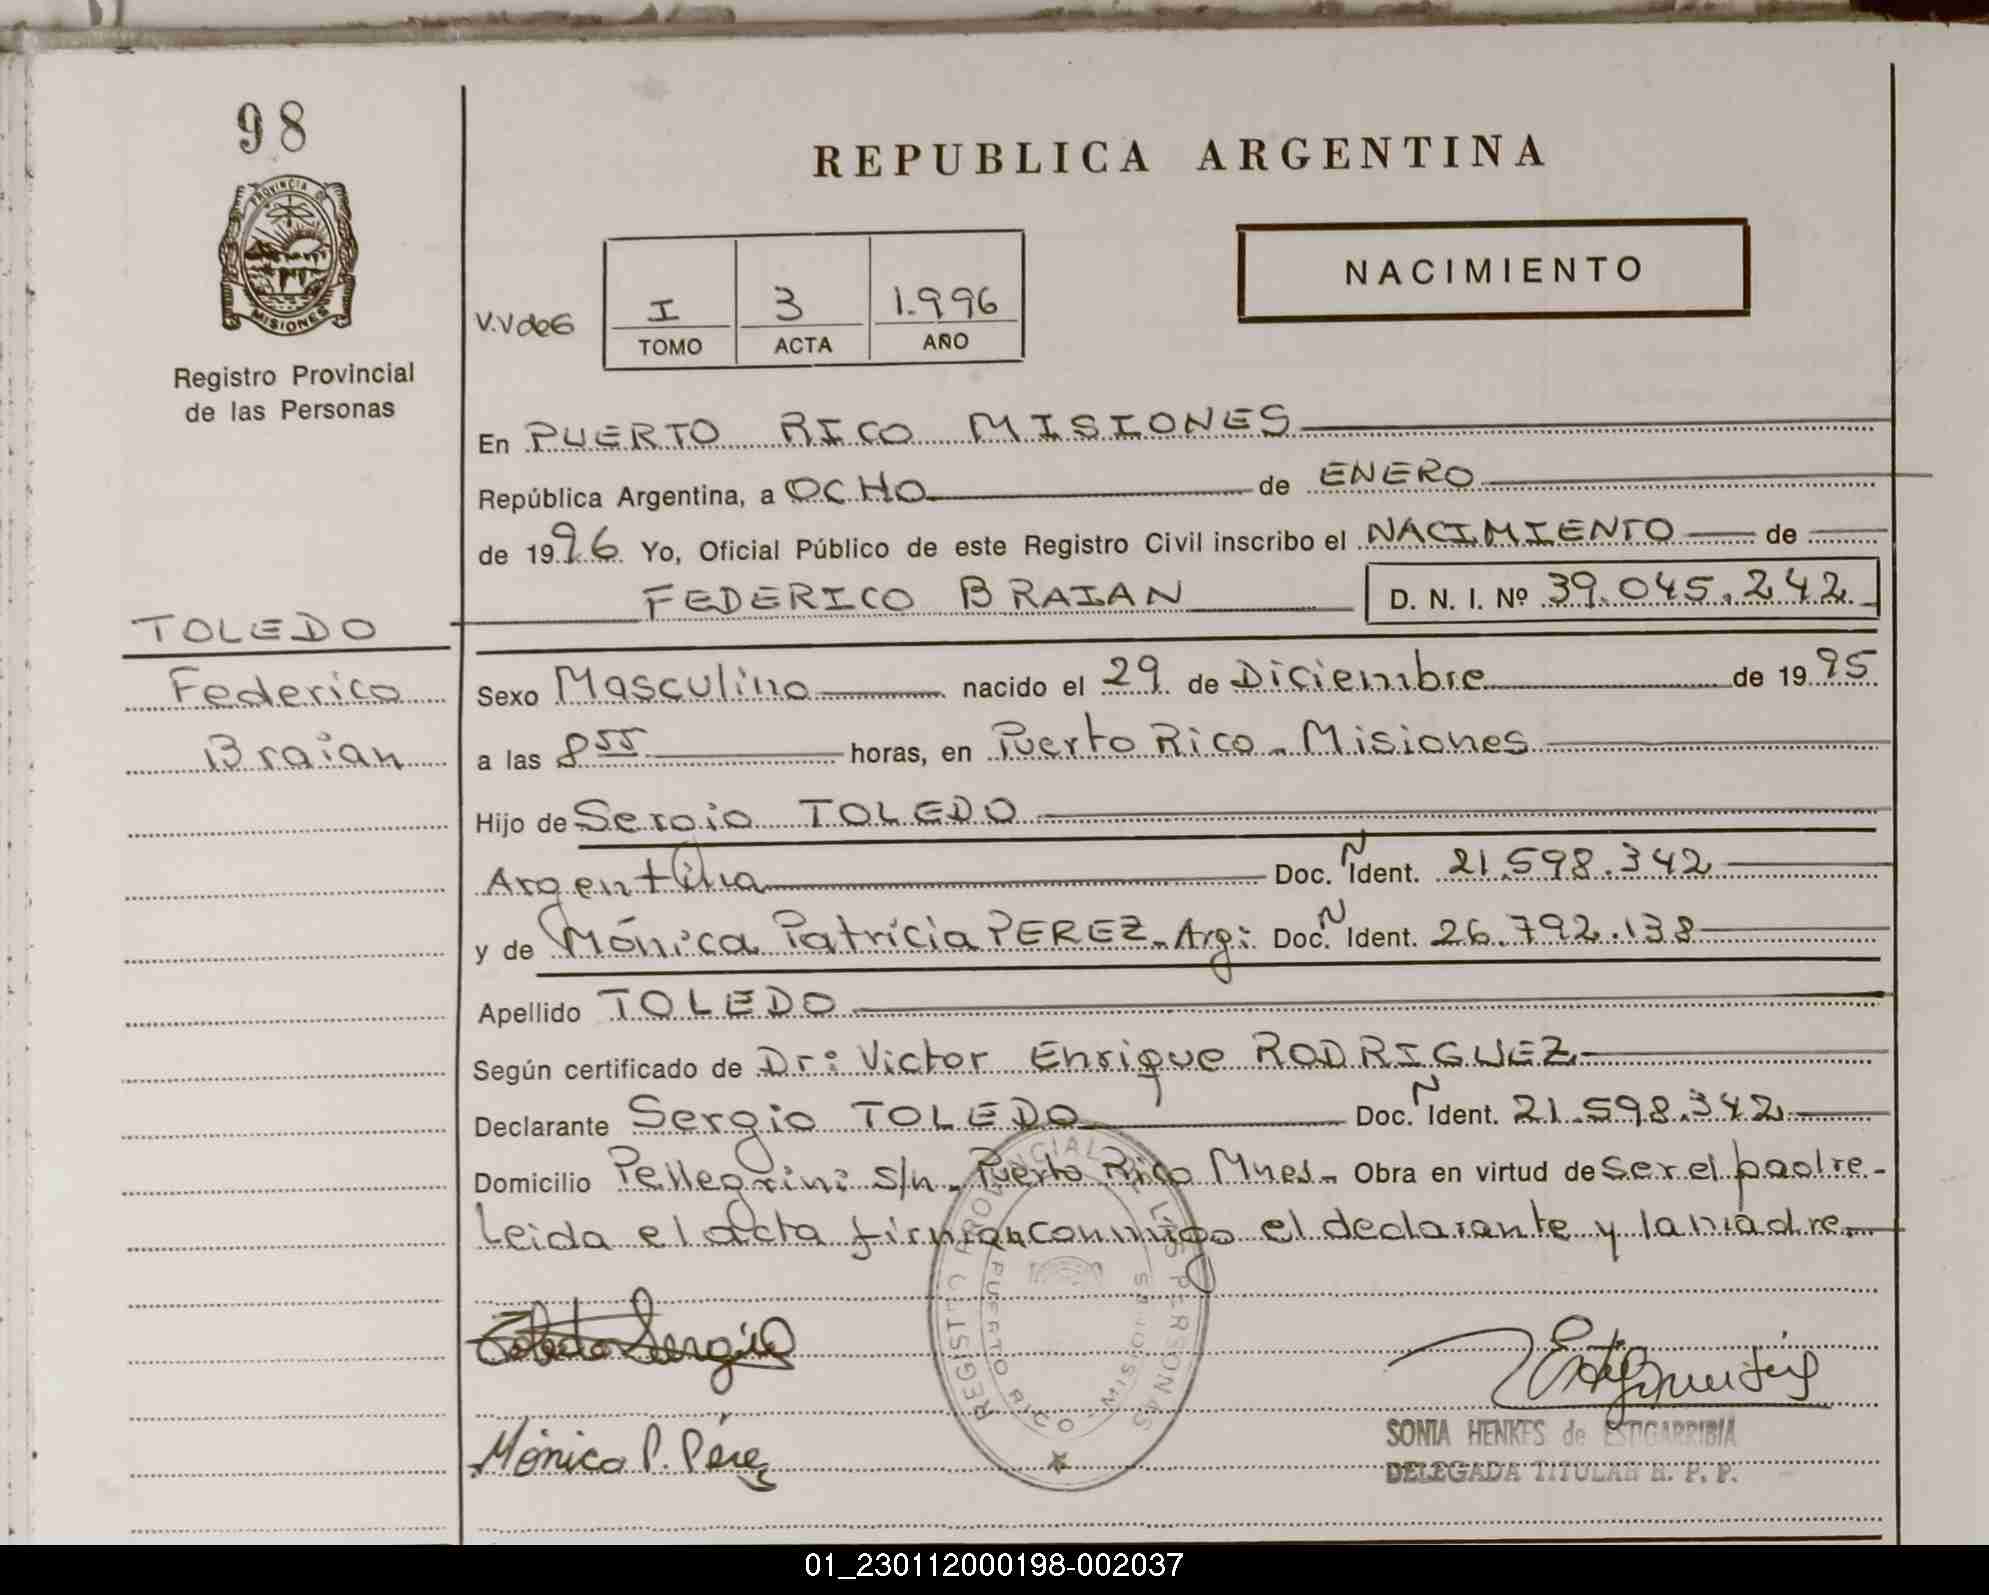 98
PROVINCIA DE
MISIONES
Registro Provincial
de las Personas
REPUBLICA ARGENTINA
NACIMIENTO
V.VdeG
I 3 1.996
TOMO ACTA AÑO
En PUERTO RICO MISIONES
República Argentina, a OCHO de ENERO
de 1996. Yo, Oficial Público de este Registro Civil inscribo el NACIMIENTO de
FEDERICO BRAIAN D. N. I. Nº 39.045.242
TOLEDO
Federico
Braian
Sexo Masculino nacido el 29 de Diciembre de 1995
a las 8 55 horas, en Puerto Rico - Misiones
Hijo de Sergio TOLEDO
Argentina Doc. N Ident. 21.598.342
y de Mónica Patricia PEREZ - Arg: Doc. N Ident. 26.792.138
Apellido TOLEDO
Según certificado de Dr: Victor Enrique RODRIGUEZ
Declarante Sergio TOLEDO Doc. N Ident. 21.598.342
Domicilio Pellegrini s/n - Puerto Rico Mnes - Obra en virtud de ser el padre -
Leida el acta firman conmigo el declarante y la madre
REGISTRO PROVINCIAL DE LAS PERSONAS
PUERTO RICO - MISIONES
Toledo Sergio
Mónica P. Pérez
SONIA HENKES de ESTIGARRIBIA
DELEGADA TITULAR R. P. P.
01_230112000198-002037